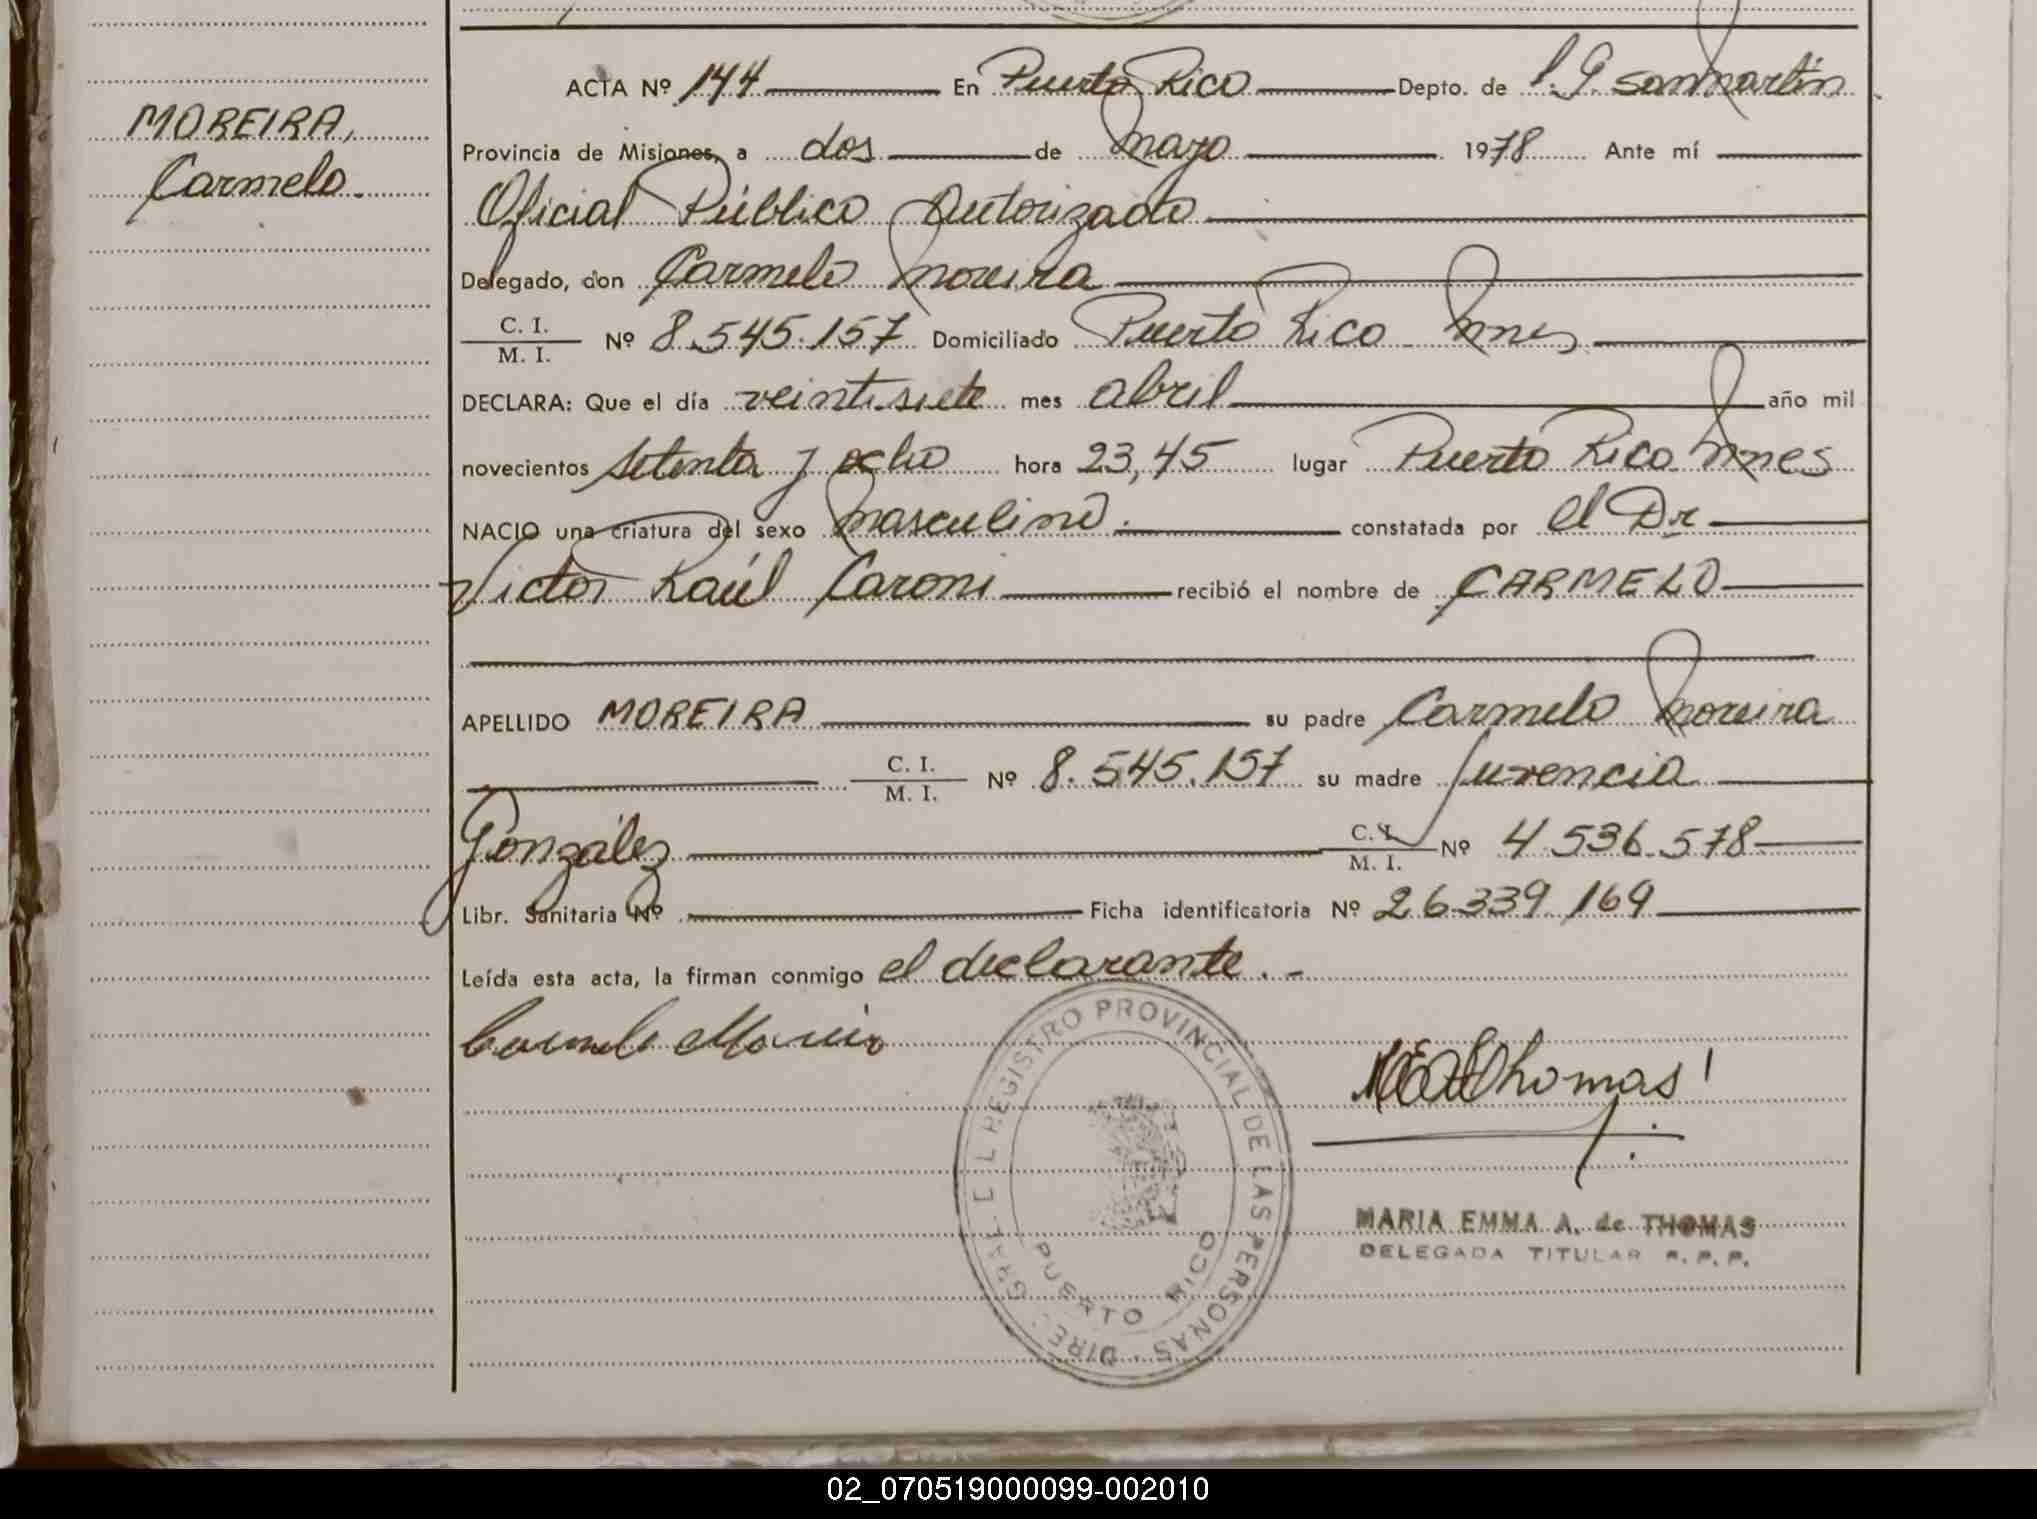 MOREIRA,
Carmelo.
ACTA Nº 144 En Puerto Rico Depto. de L.G. San Martín
Provincia de Misiones, a dos de mayo 1978 Ante mí
Oficial Público Autorizado
Delegado, don Carmelo Moreira
C. I.
M. I. Nº 8.545.157 Domiciliado Puerto Rico Mnes
DECLARA: Que el día veintisiete mes abril año mil
novecientos setenta y ocho hora 23,45 lugar Puerto Rico Mnes
NACIO una criatura del sexo masculino. constatada por el Dr
Victor Raúl Caroni recibió el nombre de CARMELO
APELLIDO MOREIRA su padre Carmelo Moreira
C. I.
M. I. Nº 8.545.157 su madre Juvencia
González C. I.
M. I. Nº 4.536.578
Libr. Sanitaria Nº Ficha identificatoria Nº 26.339.169
Leída esta acta, la firman conmigo el declarante. -
Carmelo Moreira
REGISTRO PROVINCIAL DE LAS PERSONAS
PUERTO RICO
Thomas
MARIA EMMA A. de THOMAS
DELEGADA TITULAR R.P.P.
02_070519000099-002010